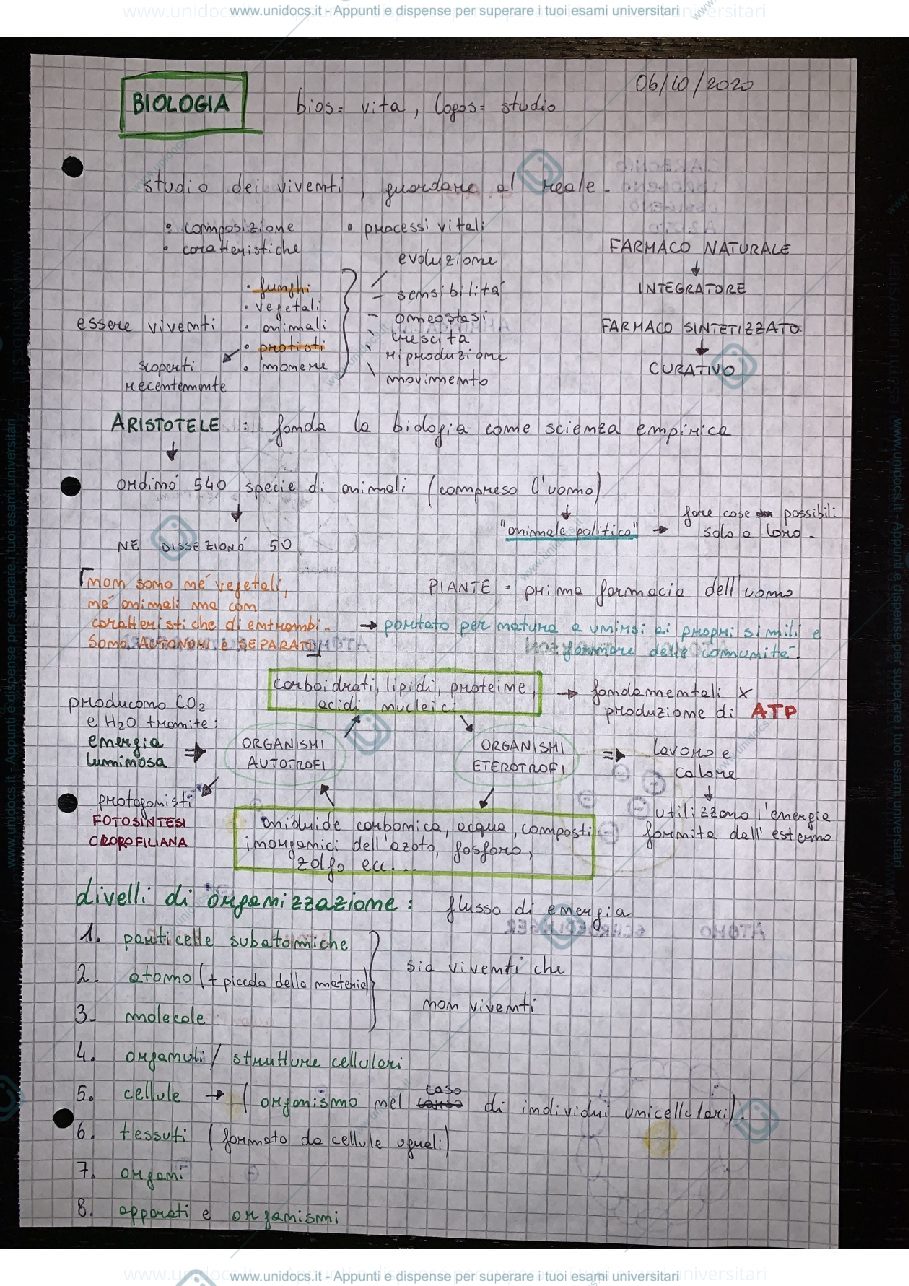 www.unidocs.it - Appunti e dispense per superare i tuoi esami universitari
06/10/2020
BIOLOGIA
bios= vita, logos= studio
studio dei viventi, guardare al reale.
• composizione
• processi vitali
• caratteristiche
FARMACO NATURALE
INTEGRATORE
FARMACO SINTETIZZATO
CURATIVO
essere viventi
• funghi
• vegetali
• animali
• protisti
• monere
scoperti
recentemente
evoluzione
sensibilità
omeostasi
crescita
riproduzione
movimento
ARISTOTELE : fonda la biologia come scienza empirica
ordinò 540 specie di animali (compreso l'uomo)
NE DISSEZIONÒ 50
"animale politico" → fare cose possibili
solo a loro.
non sono né vegetali,
né animali ma con
caratteristiche di entrambi.
SONO AUTONOMI E SEPARATI
PIANTE • prima farmacia dell'uomo
→ portato per natura a unirsi ai propri simili e
formare delle comunità
carboidrati, lipidi, proteine,
acidi nucleici
→ fondamentali x
produzione di ATP
producono CO2
e H2O tramite:
energia
luminosa
ORGANISMI
AUTOTROFI
ORGANISMI
ETEROTROFI
⇒ lavoro e
calore
protagonisti
FOTOSINTESI
CLOROFILIANA
anidride carbonica, acqua, composti
inorganici dell'azoto, fosforo,
zolfo ecc...
utilizzano l'energia
fornita dall'esterno
livelli di organizzazione : flusso di energia
1. particelle subatomiche
2. atomo (+ piccola della materia)
3- molecole
sia viventi che
non viventi
4. organuli / strutture cellulari
5. cellule → (organismo nel caso di individui unicellulari).
6. tessuti (formato da cellule uguali)
7. organi
8. apparati e organismi
www.unidocs.it - Appunti e dispense per superare i tuoi esami universitari